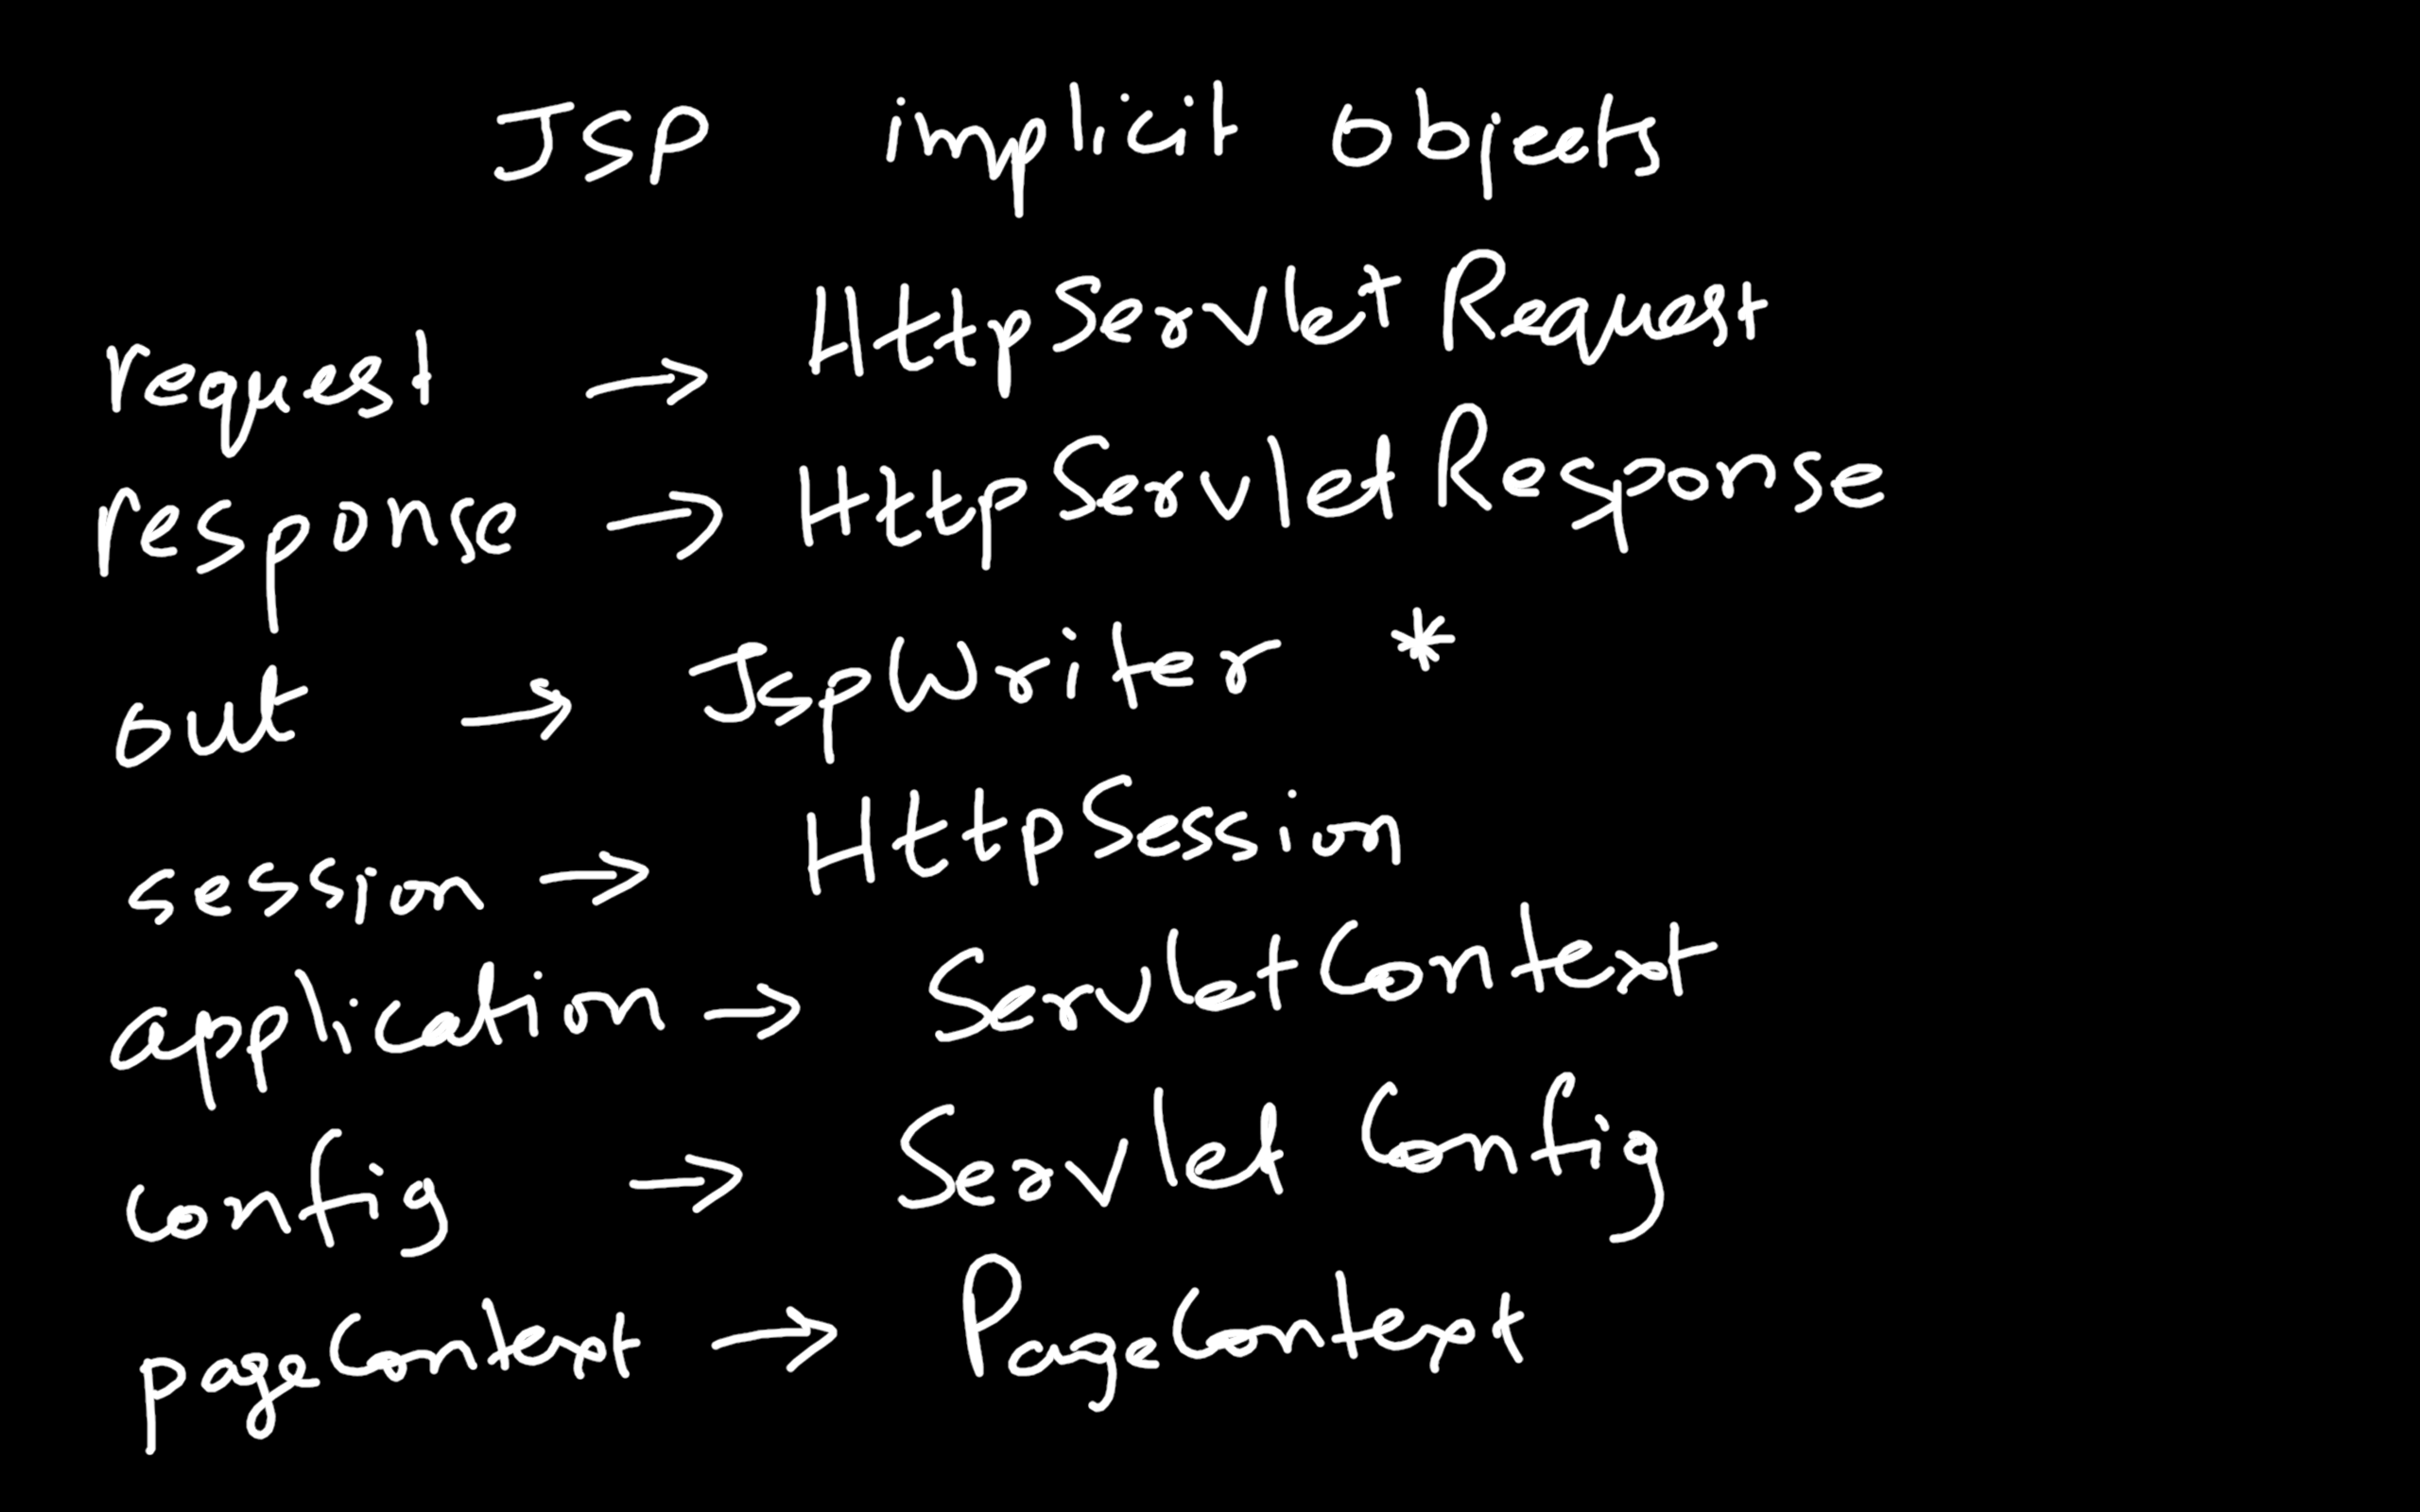 JSP implicit objects
request → HttpServletRequest
response → HttpServletResponse
out → JspWriter *
session → HttpSession
application → ServletContext
config → Servlet Config
pageContext → PageContext